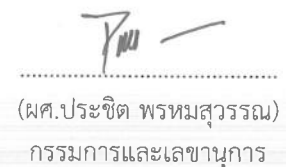 (ผศ.ประชิต พรหมสุวรรณ)
กรรมการและเลขานุการ